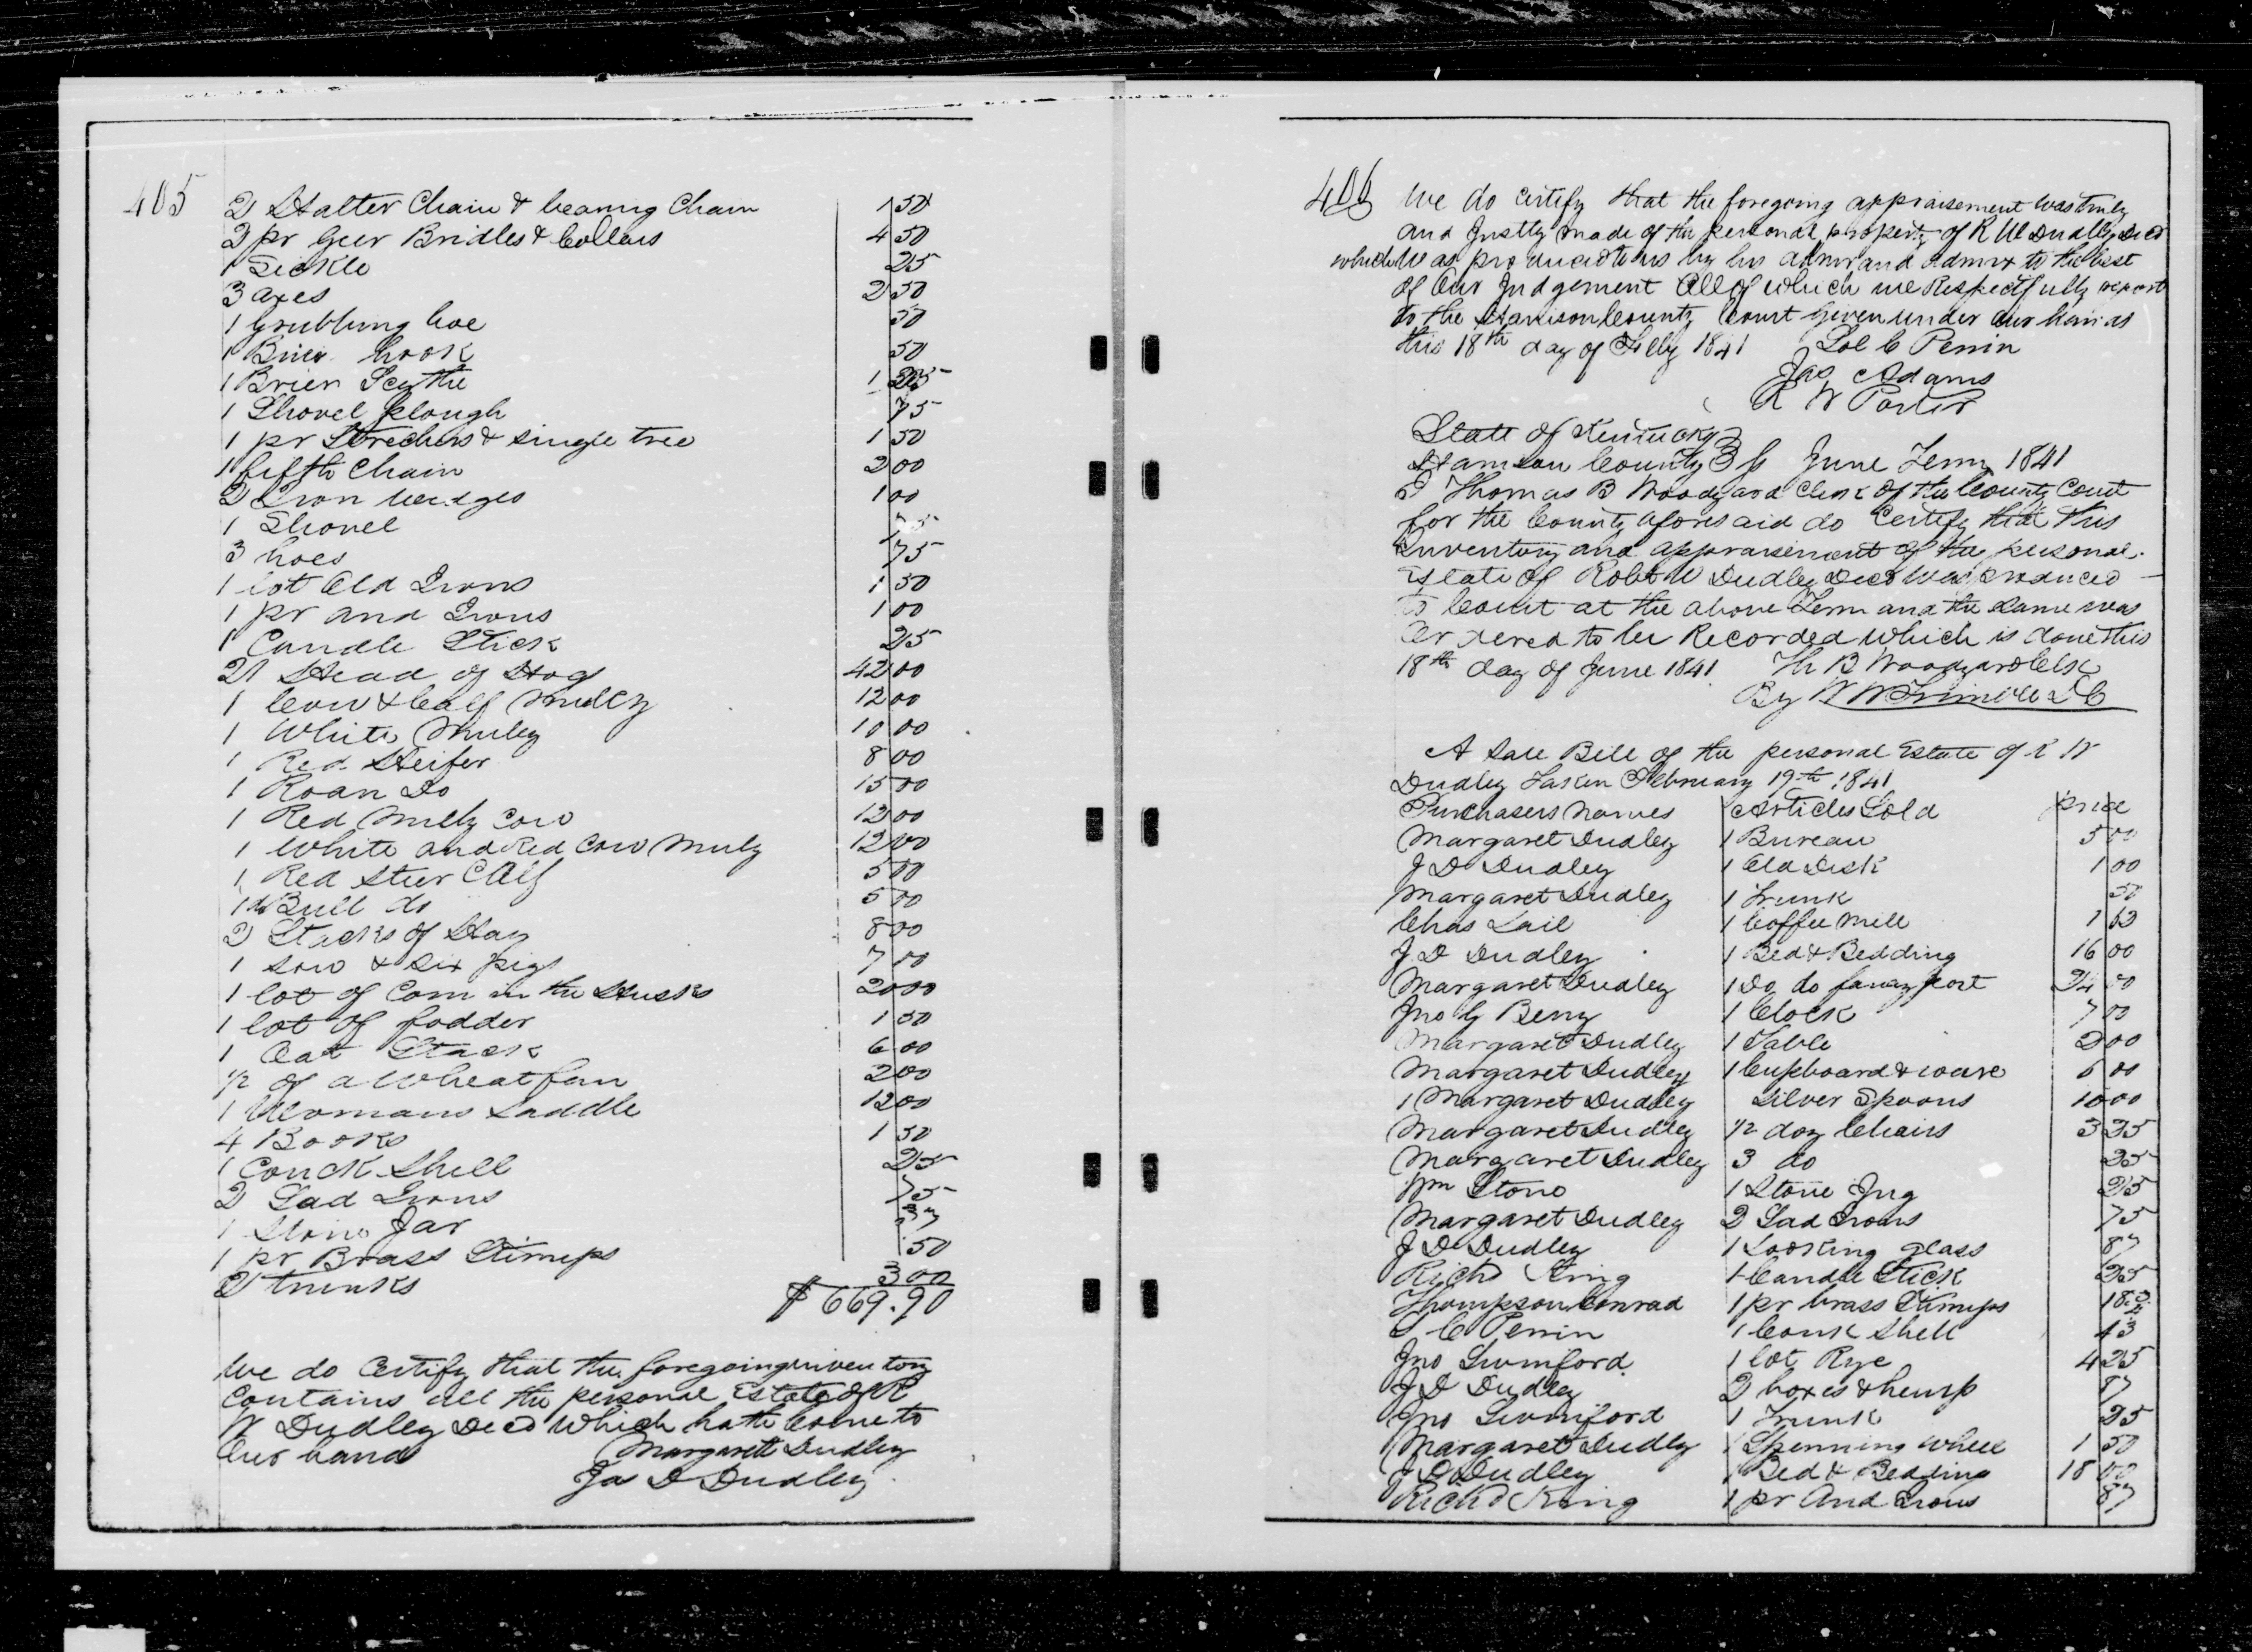 405
2 Halter Chain & bearing Chain 1 50
2 pr Geer Bridles & Collars 4 50
1 Sickle 25
3 axes 2 50
1 Grubbing hoe 50
1 Brier hook 50
1 Brier Scythe 1 25
1 Shovel plough 75
1 pr Strechers & single tree 1 50
1 fifth Chain 2 00
2 Iron wedges 1 00
1 Shovel 75
3 hoes 75
1 lot Old Irons 1 50
1 pr and Irons 1 00
1 Candle Stick 25
21 Head of Hogs 42 00
1 Cow & Calf Muley 12 00
1 White Muley 10 00
1 Red Heifer 8 00
1 Roan Do 15 00
1 Red Mully Cow 12 00
1 White and Red Cow Muly 12 00
1 Red Steer Calf 5 00
1 do Bull do 5 00
2 Stacks of Hay 8 00
1 Sow & Six pigs 7 00
1 lot of Corn in the Husks 20 00
1 lot of fodder 1 50
1 Oat Stack 6 00
1/2 of a Wheat fan 2 00
1 Womans Saddle 12 00
4 Books 1 50
1 Conck Shell 25
2 Sad Irons 75
1 Stone Jar 37
1 pr Brass Stirrups 50
2 trunks 3 00
$669.90
We do Certify that the foregoing inventory
Contains all the personal Estate of R
W Dudley Decd which hath Come to
Our hands Margarett Dudley
Jas D Dudley
406
We do certify that the foregoing appraisement was truly
and Justly made of the personal property of R W Dudley Decd
which was produced to us by his admr and admrx to the best
of Our Judgement All of which we Respectfully report
to the Harrison County Court Given under our hands
this 18th day of Feby 1841 Sol C Perrin
Jas Adams
R W Porter
State of Kentucky
Harrison County } ss June Term 1841
I Thomas B Woodyard Clerk of the County Court
for the County aforesaid do Certify that this
Inventory and appraisement of the personal
Estate of Robt W Dudley Decd was produced
to Court at the above Term and the same was
Ordered to be Recorded which is done this
18th day of June 1841 Th B Woodyard Clk
By W W Trimble D C
A Sale Bill of the personal Estate of R W
Dudley Taken February 19th 1841
Purchasers names Articles Sold price
Margaret Dudley 1 Bureau 5 00
J D Dudley 1 Old Desk 1 00
Margaret Dudley 1 Trunk 50
Chas Lail 1 Coffee Mill 1 63
J D Dudley 1 Bed & Bedding 16 00
Margaret Dudley 1 Do do fancy post 24 00
Jno G Berry 1 Clock 7 00
Margaret Dudley 1 Table 2 00
Margaret Dudley 1 Cupboard & ware 6 00
1 Margaret Dudley Silver Spoons 10 00
Margaret Dudley 1/2 doz Chairs 3 25
Margaret Dudley 3 do 25
Wm Stone 1 Stone Jug 25
Margaret Dudley 2 Sad Irons 75
J D Dudley 1 Looking glass 87
Richd King 1 Candle Stick 25
Thompson Conrad 1 pr brass Stirrups 18 3/4
S C Perrin 1 Conk Shell 43
Jno Swinford 1 lot Rye 4 25
J D Dudley 2 boxes & hemp 87
Jno Swinford 1 Trunk 25
Margaret Dudley 1 Spinning wheel 1 50
J D Dudley 1 Bed & Bedding 18 00
Richd King 1 pr And Irons 87